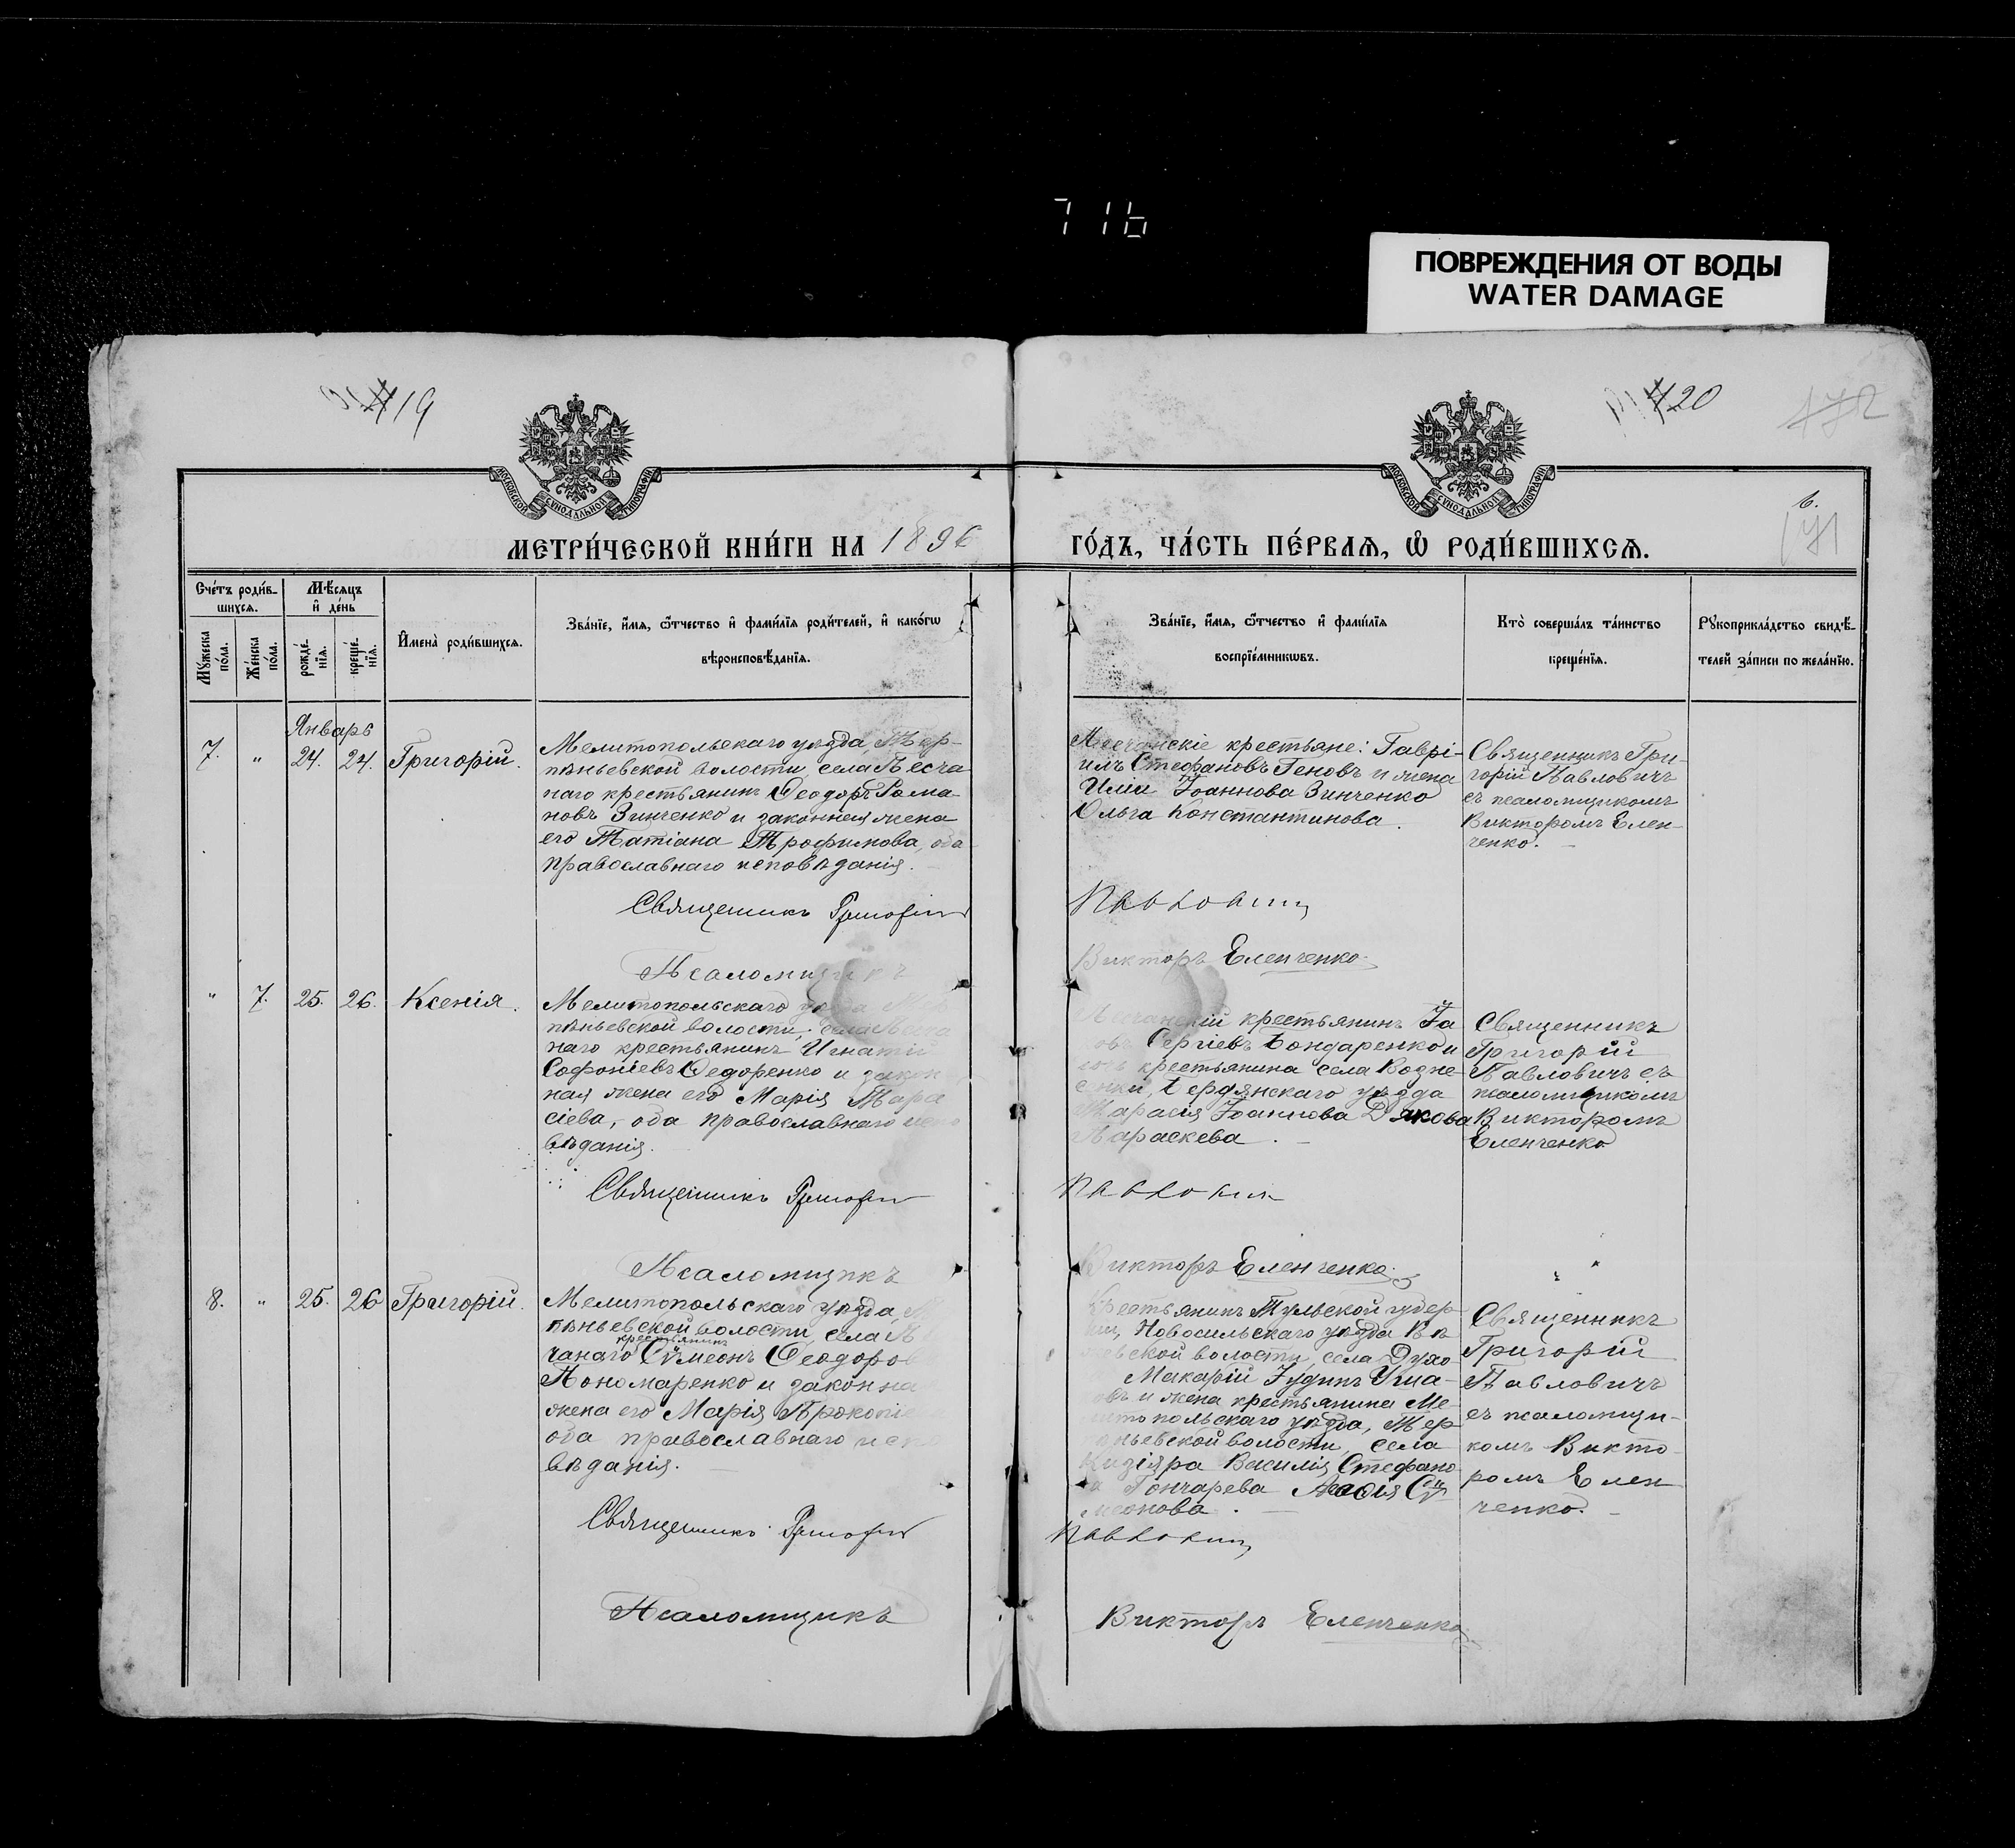 716
ПОВРЕЖДЕНИЯ ОТ ВОДЫ
WATER DAMAGE
19
20
472
МОСКОВСКОЙ СУНОДАЛЬНОЙ ТИПОГРАФІИ
МОСКОВСКОЙ СУНОДАЛЬНОЙ ТИПОГРАФІИ
6.
МЕТРИ́ЧЕСКОЙ КНИ́ГИ НА 1896
ГО́ДЪ, ЧА́СТЬ ПЕ́РВАЯ, Ѡ РОДИ́ВШИХСЯ.
Сче́тъ роди́в-
шихся.
Мѣ́сяцъ
и҆ де́нь
Мꙋ́жеска
по́ла.
Же́нска
по́ла.
рожде́-
нїя.
креще́-
нїя.
И҆мена̀ роди́вшихся.
Зва́нїе, и҆́мя, ѻ҆́тчество и҆ фами́лїя роди́телей, и҆ како́гѡ
вѣроисповѣ́данїя.
Зва́нїе, и҆́мя, ѻ҆́тчество и҆ фами́лїя
воспрїе́мникѡвъ.
Кто̀ соверша́лъ та́инство
креще́нїя.
Рꙋкоприкла́дство свидѣ́-
телей за́писи по жела́нїю.
Январь
7.
"
24.
24.
Григорій.
Мелитопольскаго уѣзда, Тер-
пѣньевской волости, села Песча
наго крестьянинъ Ѳеодоръ Рома
новъ Зинченко и законная жена
его Татіана Трофимова, оба
православнаго исповѣданія.
Священникъ Григорій
Псаломщикъ
крестьяне: Гаврі-
илъ Стефановъ Геновъ и жена
Иліи Іоаннова Зинченко
Ольга Константинова.
Павловичъ
Викторъ Еленченко
Священникъ Гри-
горій Павловичъ
съ псаломщикомъ
Викторомъ Елен-
ченко.
"
7.
25.
26.
Ксенія.
Мелитопольскаго уѣзда
пѣньевской волости, села
наго крестьянинъ Игнатій
Софоніевъ Ѳедоренко и закон
ная жена его Марія Тара
сіева, оба православнаго испо
вѣданія.
Священникъ Григорій
Псаломщикъ
крестьянинъ
Сергіевъ Бондаренко и
крестьянина села Возне
Бердянскаго уѣзда
Тарасія Іоаннова Дьякова
Параскева.
Павловичъ
Викторъ Еленченко
Священникъ
Григорій
Павловичъ съ
псаломщикомъ
Викторомъ
Еленченко
8.
"
25.
26
Григорій.
Мелитопольскаго уѣзда,
пѣньевской волости, села
крестьянинъ
чанаго Сѵмеонъ Ѳеодоров
Пономаренко и законна
жена его Марія Прокопіе
оба православнаго испо
вѣданія.
Священникъ Григорій
Псаломщикъ
Крестьянинъ Тульской губер-
Новосильскаго уѣзда
волости, села
Макарій Іудинъ
и жена крестьянина Ме-
литопольскаго уѣзда, Тер
пѣньевской волости, села
Василія Стефано
Гончарева Сѵ
меонова.
Павловичъ
Викторъ Еленченко
Священникъ
Григорій
Павловичъ
съ псаломщи-
комъ Викто-
ромъ Елен
ченко.